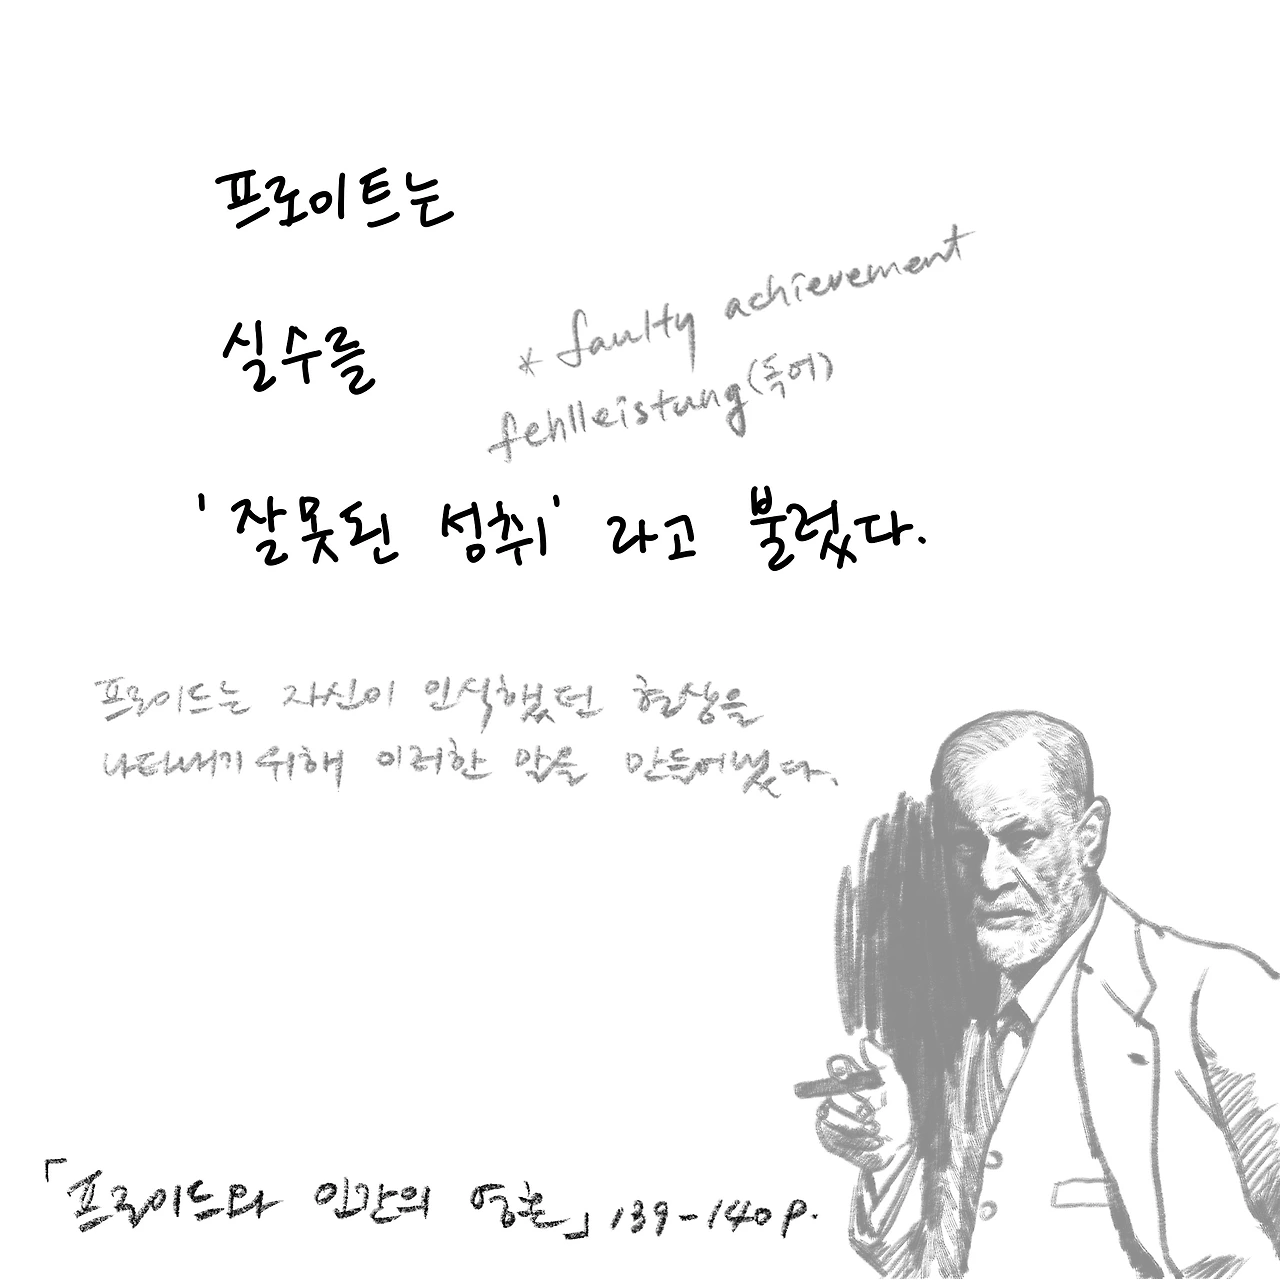 프로이트는
실수를
* faulty achievement
fehlleistung(독어)
'잘못된 성취'라고 불렀다.
프로이드는 자신이 인식했던 현상을
나타내기 위해 이러한 말을 만들어냈다.
「프로이드와 인간의 영혼」 139-140 p.